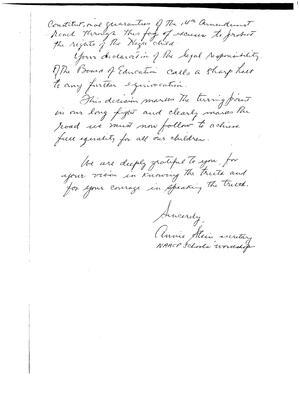 Constitutional guarantees of the 14th Amendment
reach through this fog of excuses to protect
the rights of the Negro child.
Your declaration of the legal responsibility
of the Board of Education calls a sharp halt
to any further equivocation.
This decision marks the turning point
in our long fight and clearly marks the
road we must now follow to achieve
full equality for all our children.
We are deeply grateful to you for
your vision in knowing the truth and
for your courage in speaking the truth.
Sincerely,
Annie Stein secretary
NAACP Schools Workshop